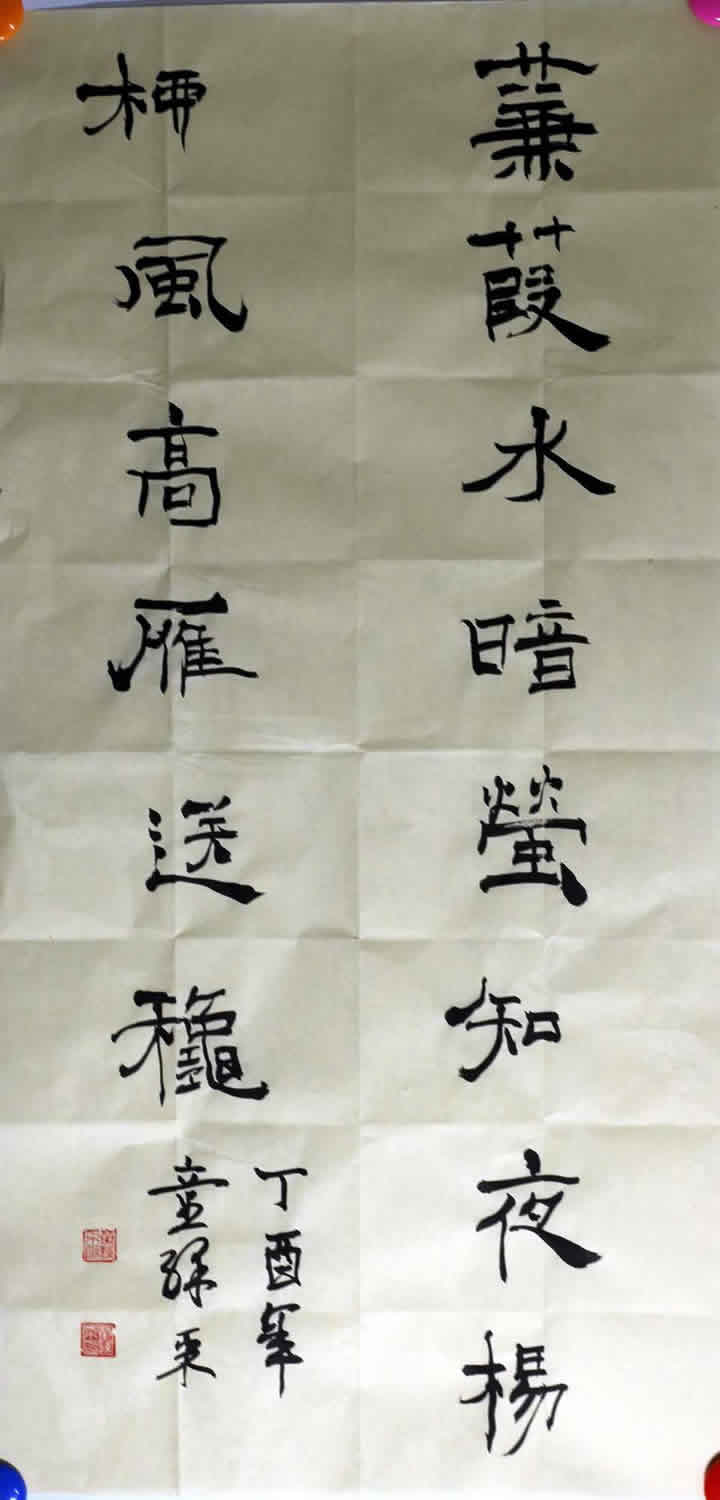 蒹葭水暗螢知夜楊
桺風高雁送龝
丁酉年
童